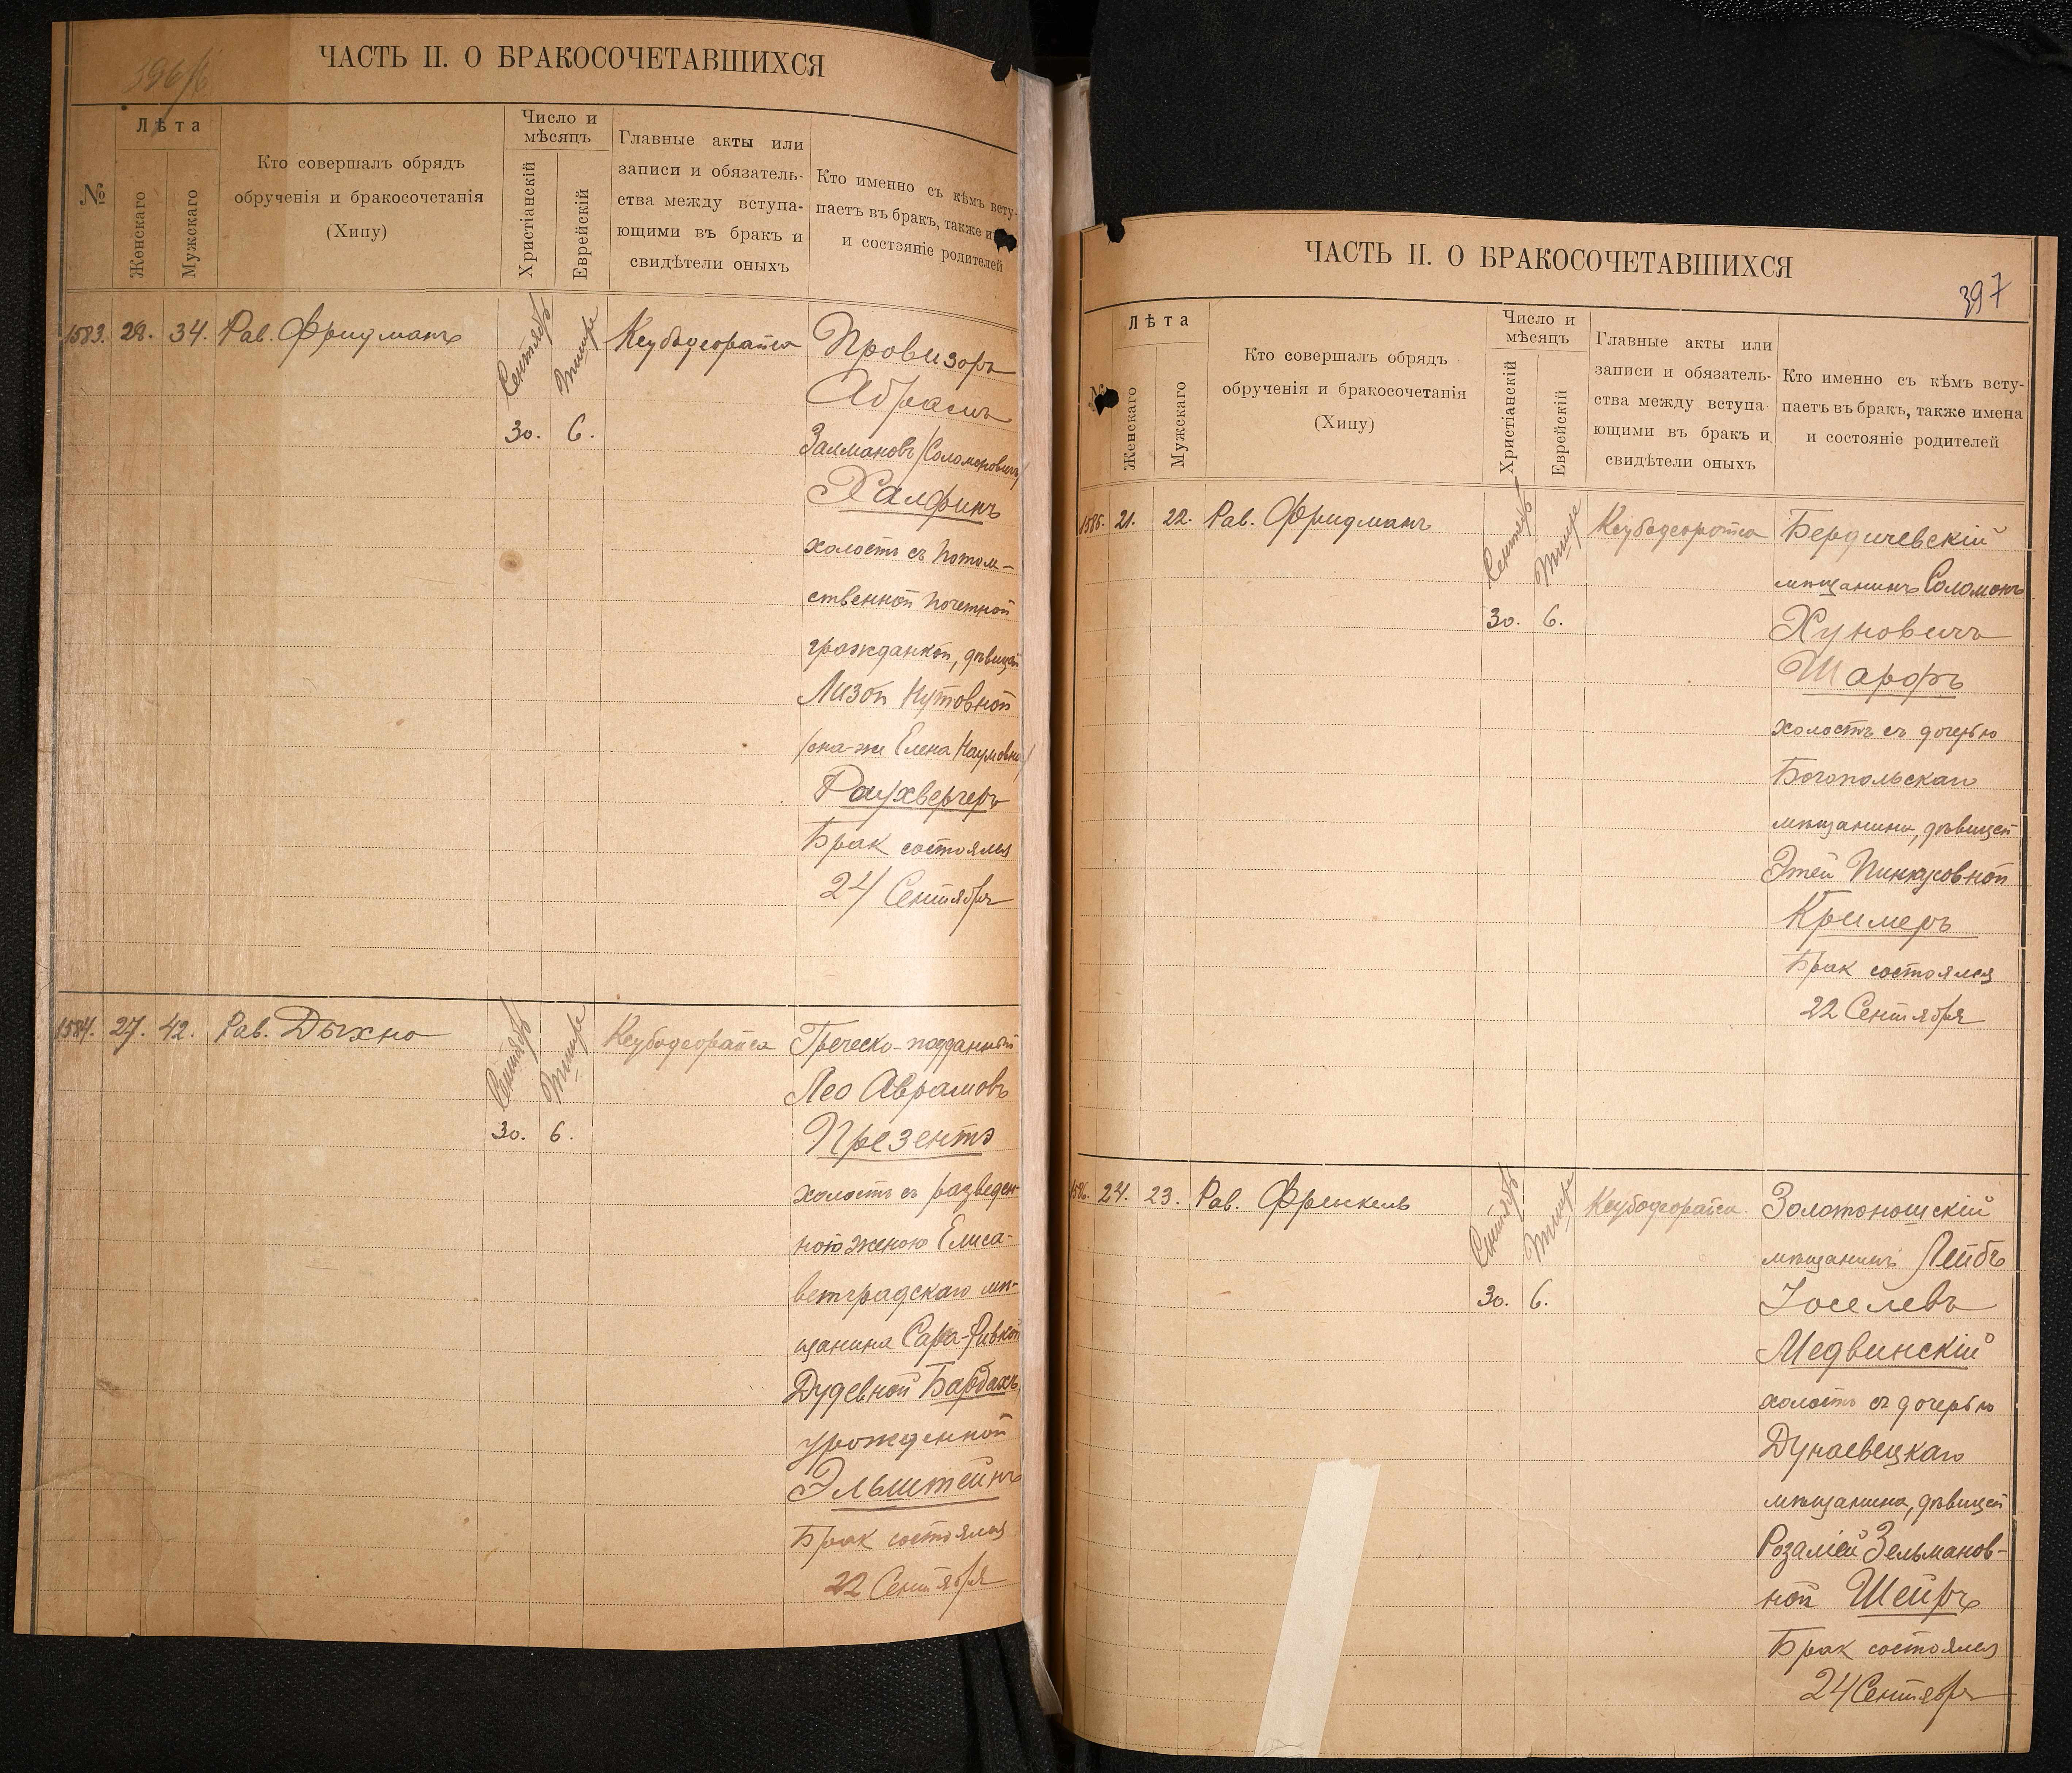 ЧАСТЬ II. О БРАКОСОЧЕТАВШИХСЯ
№
Лѣта
Женскаго
Мужскаго
Кто совершалъ обрядъ
обрученія и бракосочетанія
(Хипу)
Число и
мѣсяцъ
Христіанскій
Еврейскій
Главные акты или
записи и обязатель-
ства между вступа-
ющими въ бракъ и
свидѣтели оныхъ
Кто именно съ кѣмъ всту-
паетъ въ бракъ, также
и состэяніе родителей
1583. 28. 34. Рав. Фридманъ
Сентябрь
Тишре
30. 6.
Провизоръ
Абрамъ
Залмановъ /Соломоновичъ/
Халфинъ
холостъ съ потом-
ственной почетной
гражданкой, дѣвицей
Лизой Нутовной
/она-же Елена Наумовна/
Раухвергеръ
Брак состоялся
24 Сентября
1584. 27. 42. Рав. Дыхно
Сентябрь
Тишре
30. 6.
Греческо-подданный
Лео Аврамовъ
Презентэ
холостъ съ разведен-
ною женою Елиса-
ветградскаго мѣ-
щанина Сара-Ривкой
Дудевной Барбахъ,
урожденной
Эльштейнъ
Брак состоялся
22 Сентября
ЧАСТЬ II. О БРАКОСОЧЕТАВШИХСЯ
397
№
Лѣта
Женскаго
Мужскаго
Кто совершалъ обрядъ
обрученія и бракосочетанія
(Хипу)
Число и
мѣсяцъ
Христіанскій
Еврейскій
Главные акты или
записи и обязатель-
ства между вступа-
ющими въ бракъ и
свидѣтели оныхъ
Кто именно съ кѣмъ всту-
паетъ въ бракъ, также имена
и состояніе родителей
1585. 21. 22. Рав. Фридманъ
Сентябрь
Тишре
30. 6.
Бердичевскій
мѣщанинъ Соломонъ
Хуновичъ
Шарфъ
холостъ съ дочерью
Богопольскаго
мѣщанина, дѣвицей
Этей Пинкусовной
Кримеръ
Брак состоялся
22 Сентября
1586. 24. 23. Рав. Френкель
Сентябрь
Тишре
30. 6.
Золотоношскій
мѣщанинъ Лейбъ
Іоселевъ
Медвинскій
холостъ съ дочерью
Дунаевецкаго
мѣщанина, дѣвицей
Розаліей Зельманов-
ной Шейръ
Брак состоялся
24 Сентября